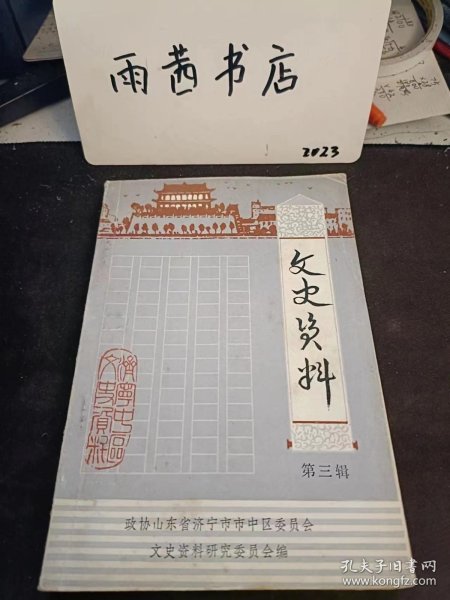 雨茜书店
2023
文史资料
第三辑
政协山东省济宁市市中区委员会
文史资料研究委员会编
孔夫子旧书网
www.kongfz.com